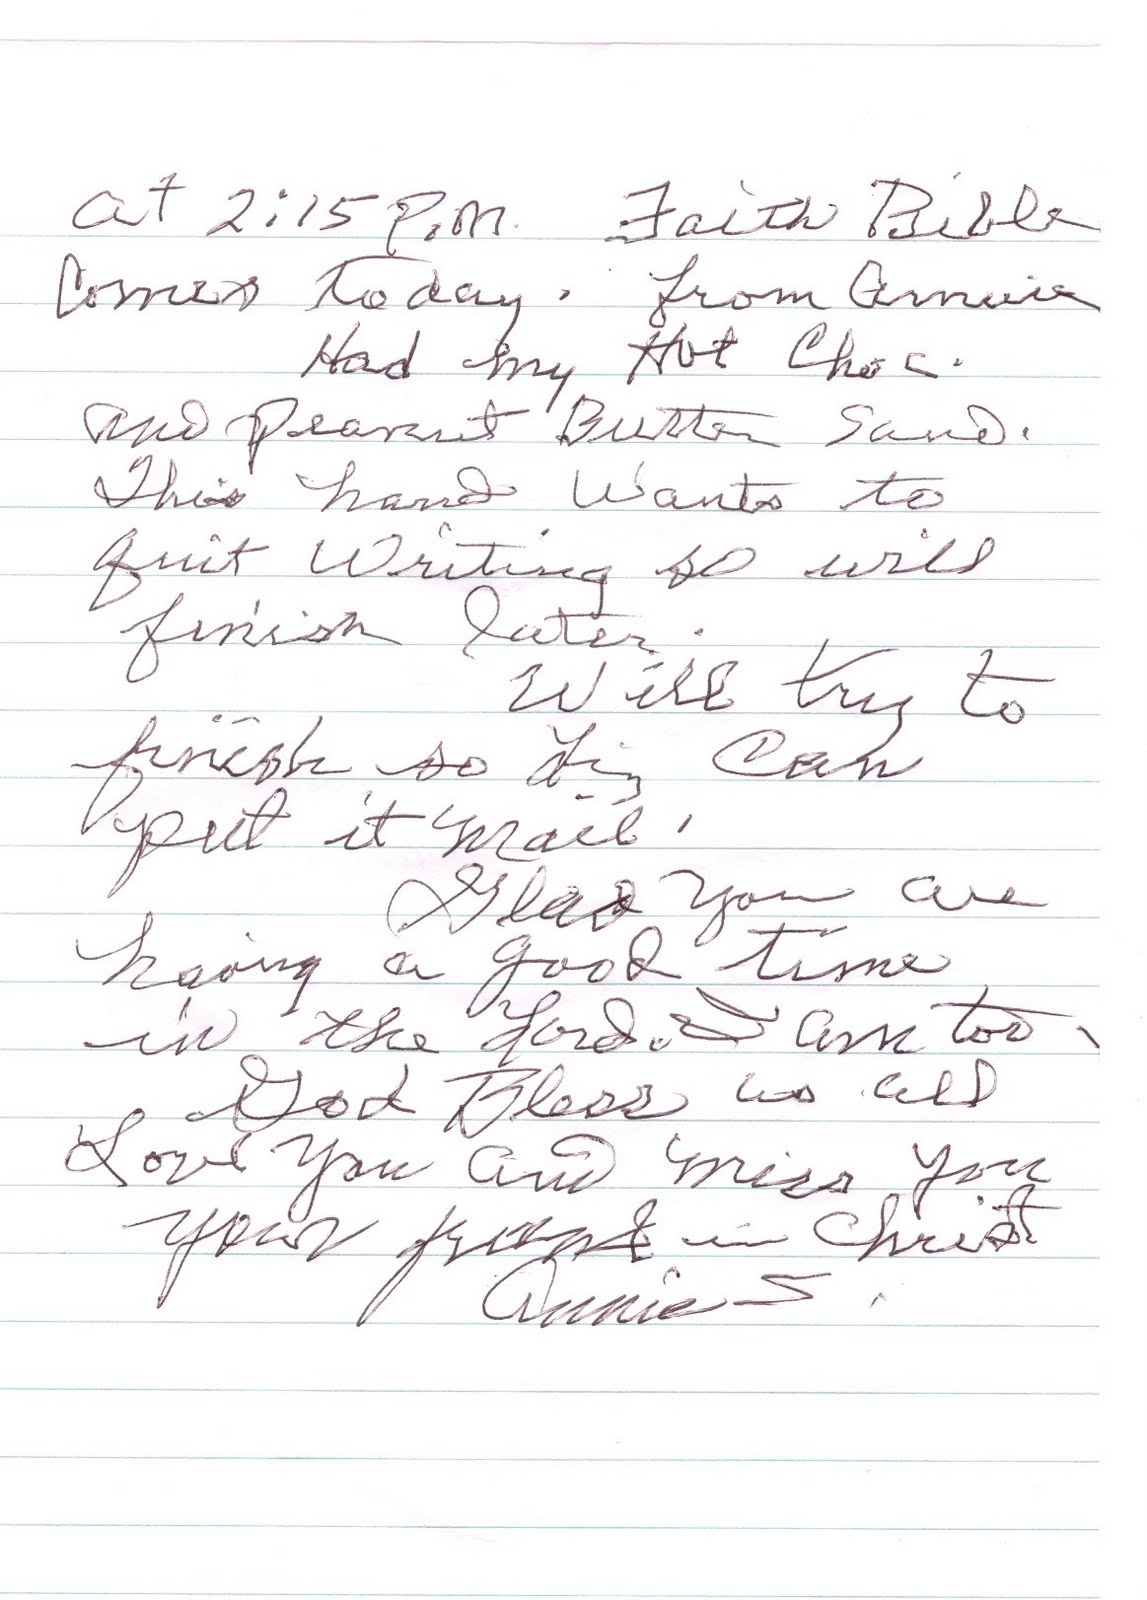 at 2:15 P.M. Faith Bible
Comes Today. from
Had my Hot Choc.
and Peanut Butter Sand.
This hand Wants to
quit Writing so will
finish later.
Will try to
finish so Liz Can
put it mail.
Glad you are
having a good time
in the Lord. I am too.
God Bless us all
Love You and miss you
your friend in Christ
Annie S.